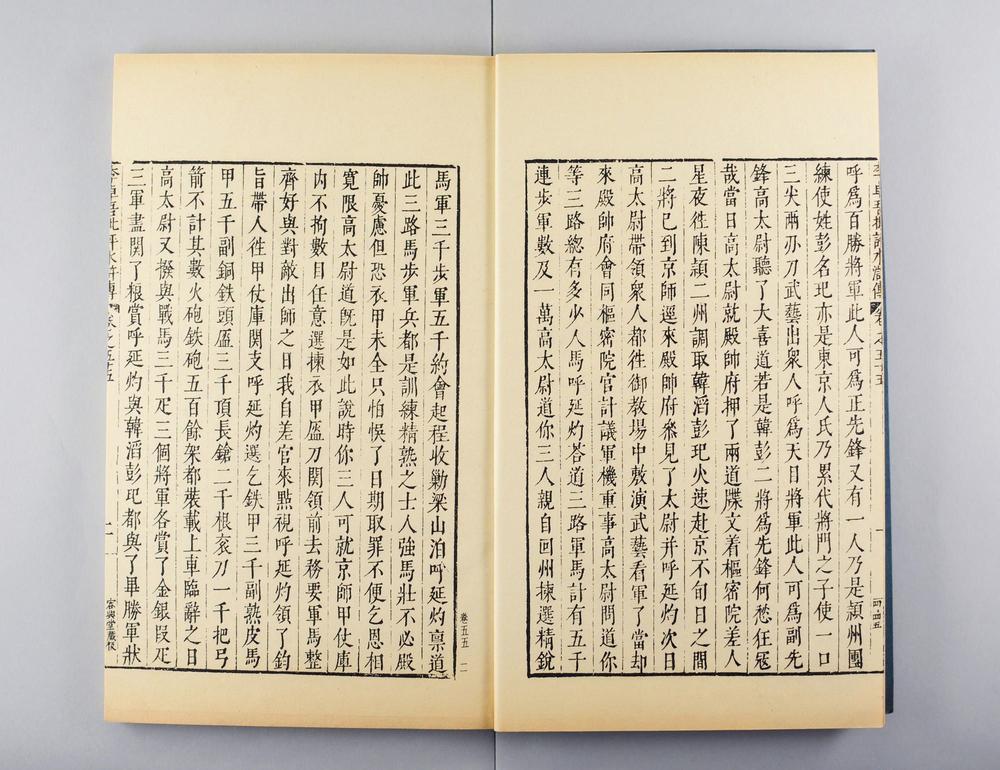 李卓吾批評水滸傳 卷之五十五
呼爲百勝將軍此人可爲正先鋒又有一人乃是潁州團
練使姓彭名玘亦是東京人氏乃累代將門之子使一口
三尖兩刃刀武藝出衆人呼爲天目將軍此人可爲副先
鋒高太尉聽了大喜道若是韓彭二將爲先鋒何愁狂冦
哉當日高太尉就殿帥府押了兩道牒文着樞密院差人
星夜徃陳潁二州調取韓滔彭玘火速赴京不旬日之間
二將已到京師逕來殿帥府叅見了太尉并呼延灼次日
高太尉帶領衆人都徃御教場中敷演武藝看軍了當却
來殿帥府會同樞密院官計議軍機重事高太尉問道你
等三路緫有多少人馬呼延灼荅道三路軍馬計有五千
連步軍數及一萬高太尉道你三人親自回州揀選精銳
卷五五 二
馬軍三千步軍五千約會起程收勦梁山泊呼延灼禀道
此三路馬步軍兵都是訓練精熟之士人強馬壯不必殿
帥憂慮但恐衣甲未全只怕悞了日期取罪不便乞恩相
寛限高太尉道旣是如此說時你三人可就京師甲仗庫
内不拘數目任意選揀衣甲盔刀関領前去務要軍馬整
齊好與對敵出師之日我自差官來㸃視呼延灼領了鈞
旨帶人徃甲仗庫関支呼延灼選乞鉄甲三千副熟皮馬
甲五千副銅鉄頭盔三千頂長鎗二千根衮刀一千把弓
箭不計其數火砲鉄砲五百餘架都裝載上車臨辭之日
高太尉又撥與戰馬三千疋三個將軍各賞了金銀叚疋
三軍盡関了粮賞呼延灼與韓滔彭玘都與了畢勝軍狀
李卓吾批評水滸傳 卷之五十五 二 容與堂藏板